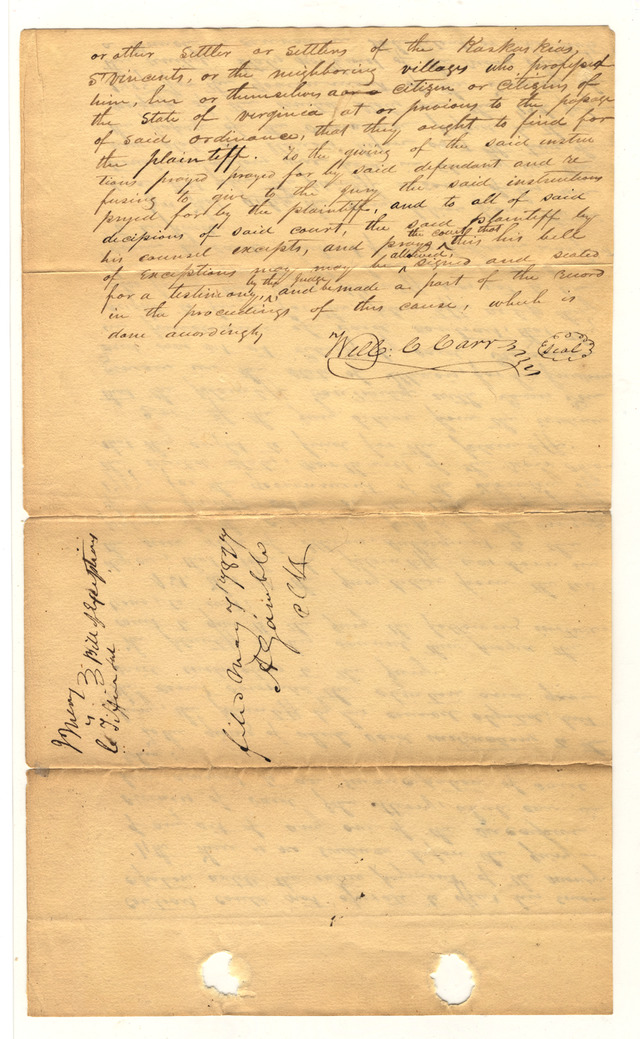 or other Settler or Settlers of the Kaskaskias,
St Vincents, or the neighboring villages who professed
him, her or themselves a citizen or Citizens of
the State of virginia at or previous to the passage
of said ordinance, that they ought to find for
the plaintiff. To the giving of the said instruc
tions prayed prayed for by said defendant and re
fusing to give to the jury the said instructions
prayed for by the plaintiff, and to all of said
decisions of said court, the said plaintiff by
his counsel excepts, and prays the court that this his bill
of Exceptions may may be allowed, signed and sealed
for a testimony, by the Judge and be made a part of the record
in the proceedings of this cause, which is
done accordingly
Will: C Carr Seal
Merry
v
Tiffin &c
Bill of Exceptions
filed May 7th 1827
A Gamble
clk